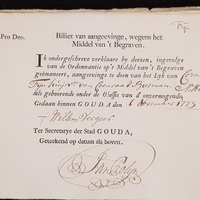 Pro Deo.
Billiet van aangeevinge, wegens het
Middel van 't Begraven.
Ik ondergeschreve verklaare by deezen, ingevolge
van de Ordonnantie op 't Middel van 't Begraven
geëmaneert, aangeevinge te doen van het Lyk van
van
als gehoorende onder de Classis van d' onvermogende.
Gedaan binnen GOUDA den 6 November 1773
Willem
Ter Secretarye der Stad GOUDA,
Geteekend op datum als boven.